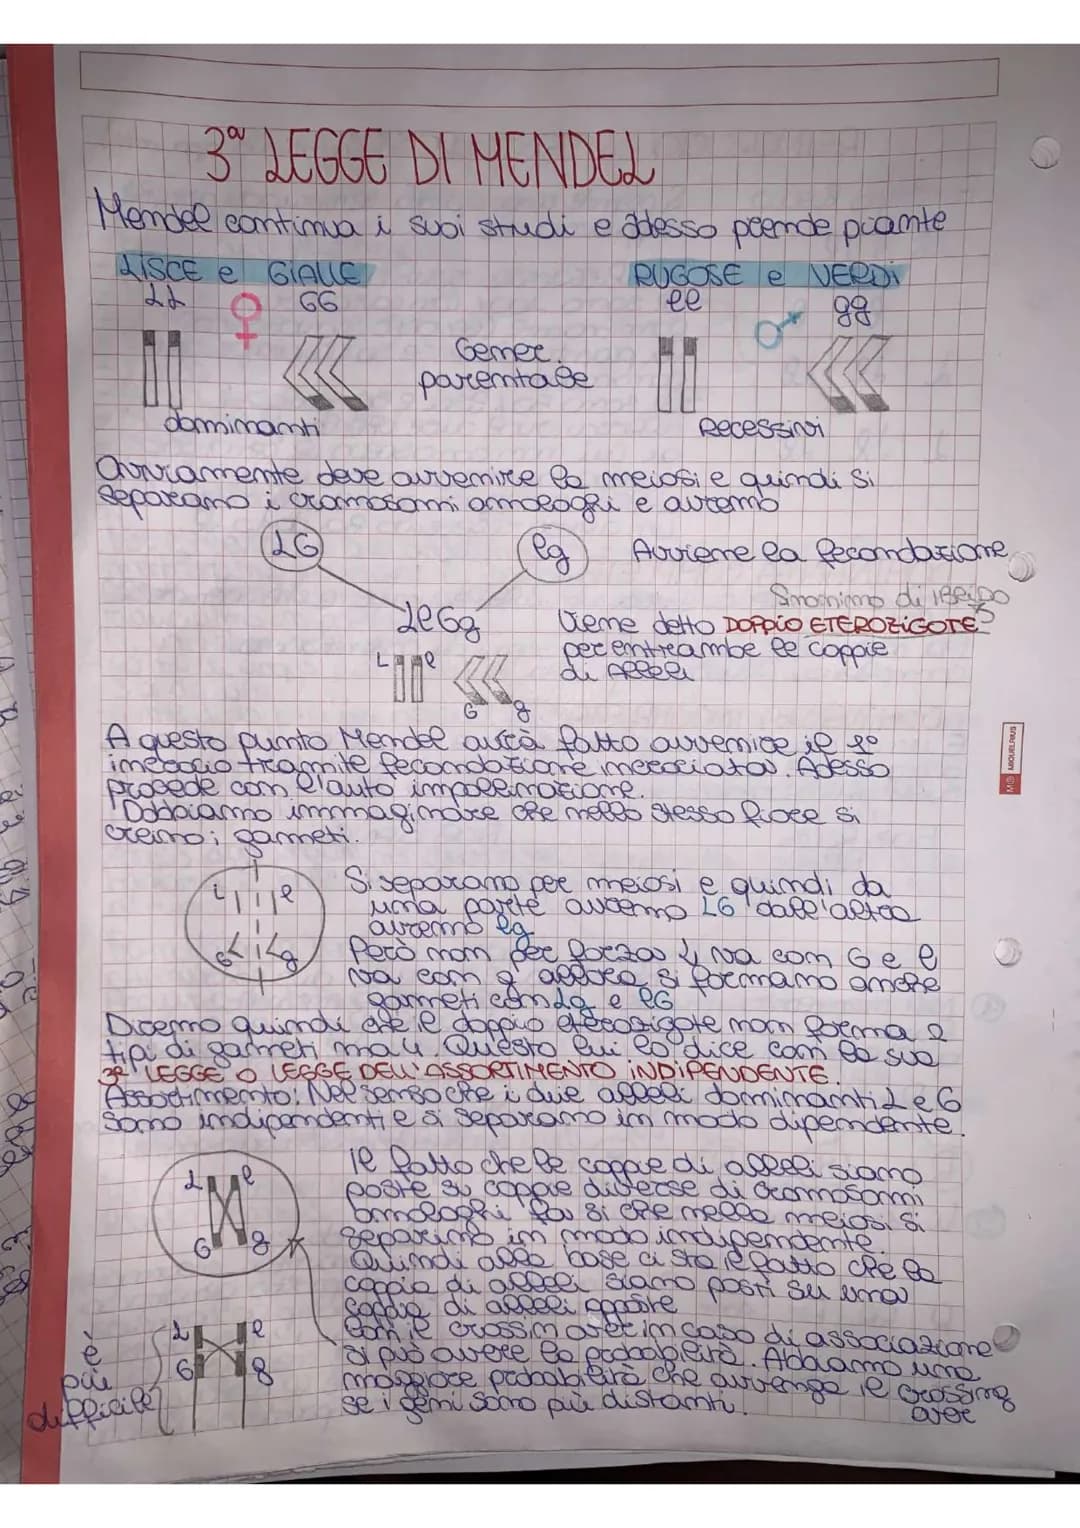 3ª LEGGE DI MENDEL
Mendel continua i suoi studi e adesso prende piante
LISCE e GIALLE RUGOSE e VERDI
LL ♀ GG ll ♂ gg
Gener.
parentale
dominanti Recessivi
Ovviamente deve avvenire la meiosi e quindi si
separano i cromosomi omologhi e avremo
LG lg Avviene la fecondazione
Sinonimo di IBRIDO
LlGg Viene detto DOPPIO ETEROZIGOTE
per entrambe le coppie
di Alleli
L l
G g
A questo punto Mendel avrà fatto avvenire il 1º
incrocio tramite fecondazione incrociata. Adesso
procede con l'auto impollinazione.
Dobbiamo immaginare che nello stesso fiore si
creino i gameti.
L l Si separano per meiosi e quindi da
una parte avremo LG dall'altra
avremo lg
G g Però non per forza L va con G e l
va con g allora si formano anche
gameti con Lg e lG
Diremo quindi che il doppio eterozigote non forma 2
tipi di gameti ma 4. Questo lui lo dice con la sua
3ª LEGGE O LEGGE DELL'ASSORTIMENTO INDIPENDENTE.
Assortimento: Nel senso che i due alleli dominanti L e G
sono indipendenti e si separano in modo dipendente.
Il fatto che le coppie di alleli siano
L l poste su coppie diverse di cromosomi
omologhi fa si che nella meiosi si
G g separino in modo indipendente.
Quindi alla base ci sta il fatto che la
coppia di alleli siano posti su una
coppia di alleli opposte
L l Con il crossin over in caso di associazione
è G g si può avere la probabilità. Abbiamo una
più maggiore probabilità che avvenga il crossing
difficile se i geni sono più distanti. over
MIQUELRIUS